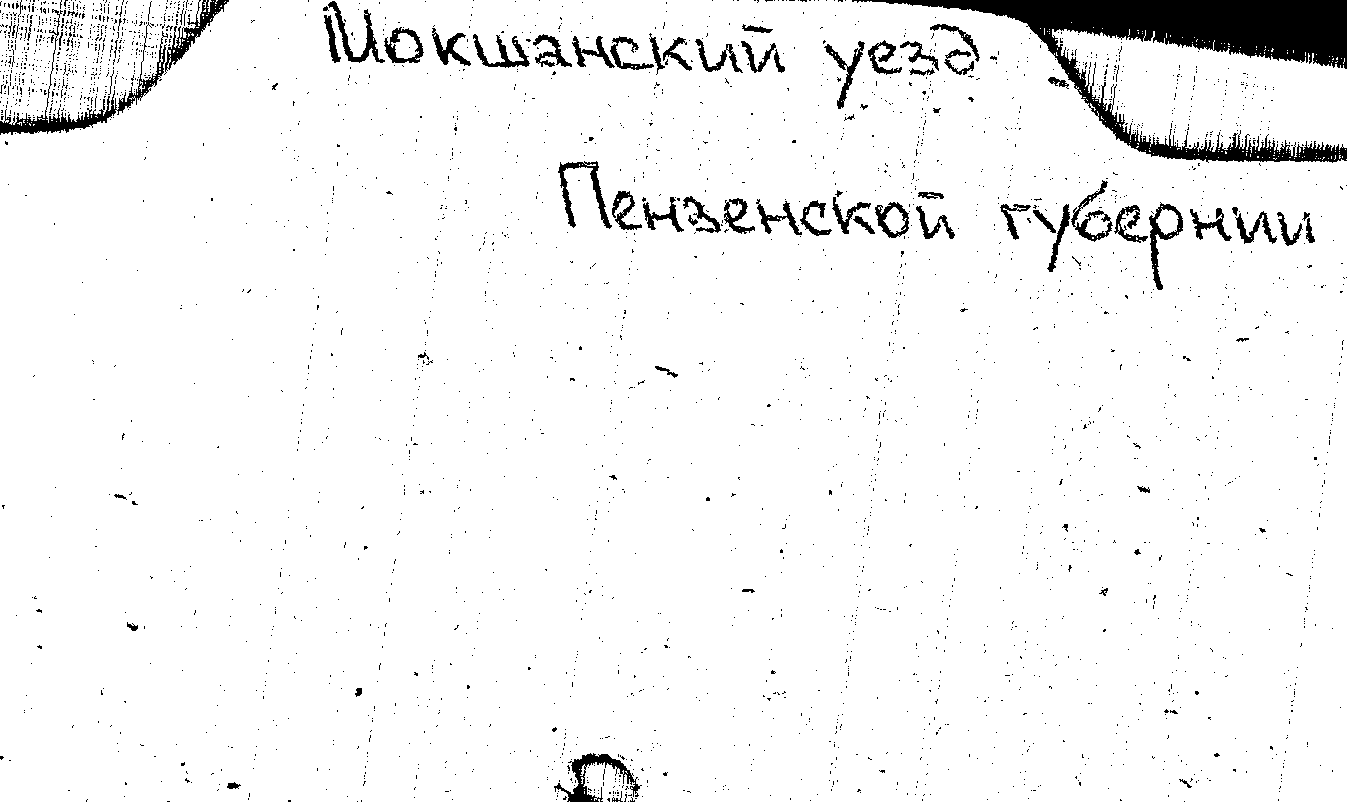 Мокшанский уезд
Пензенской губернии